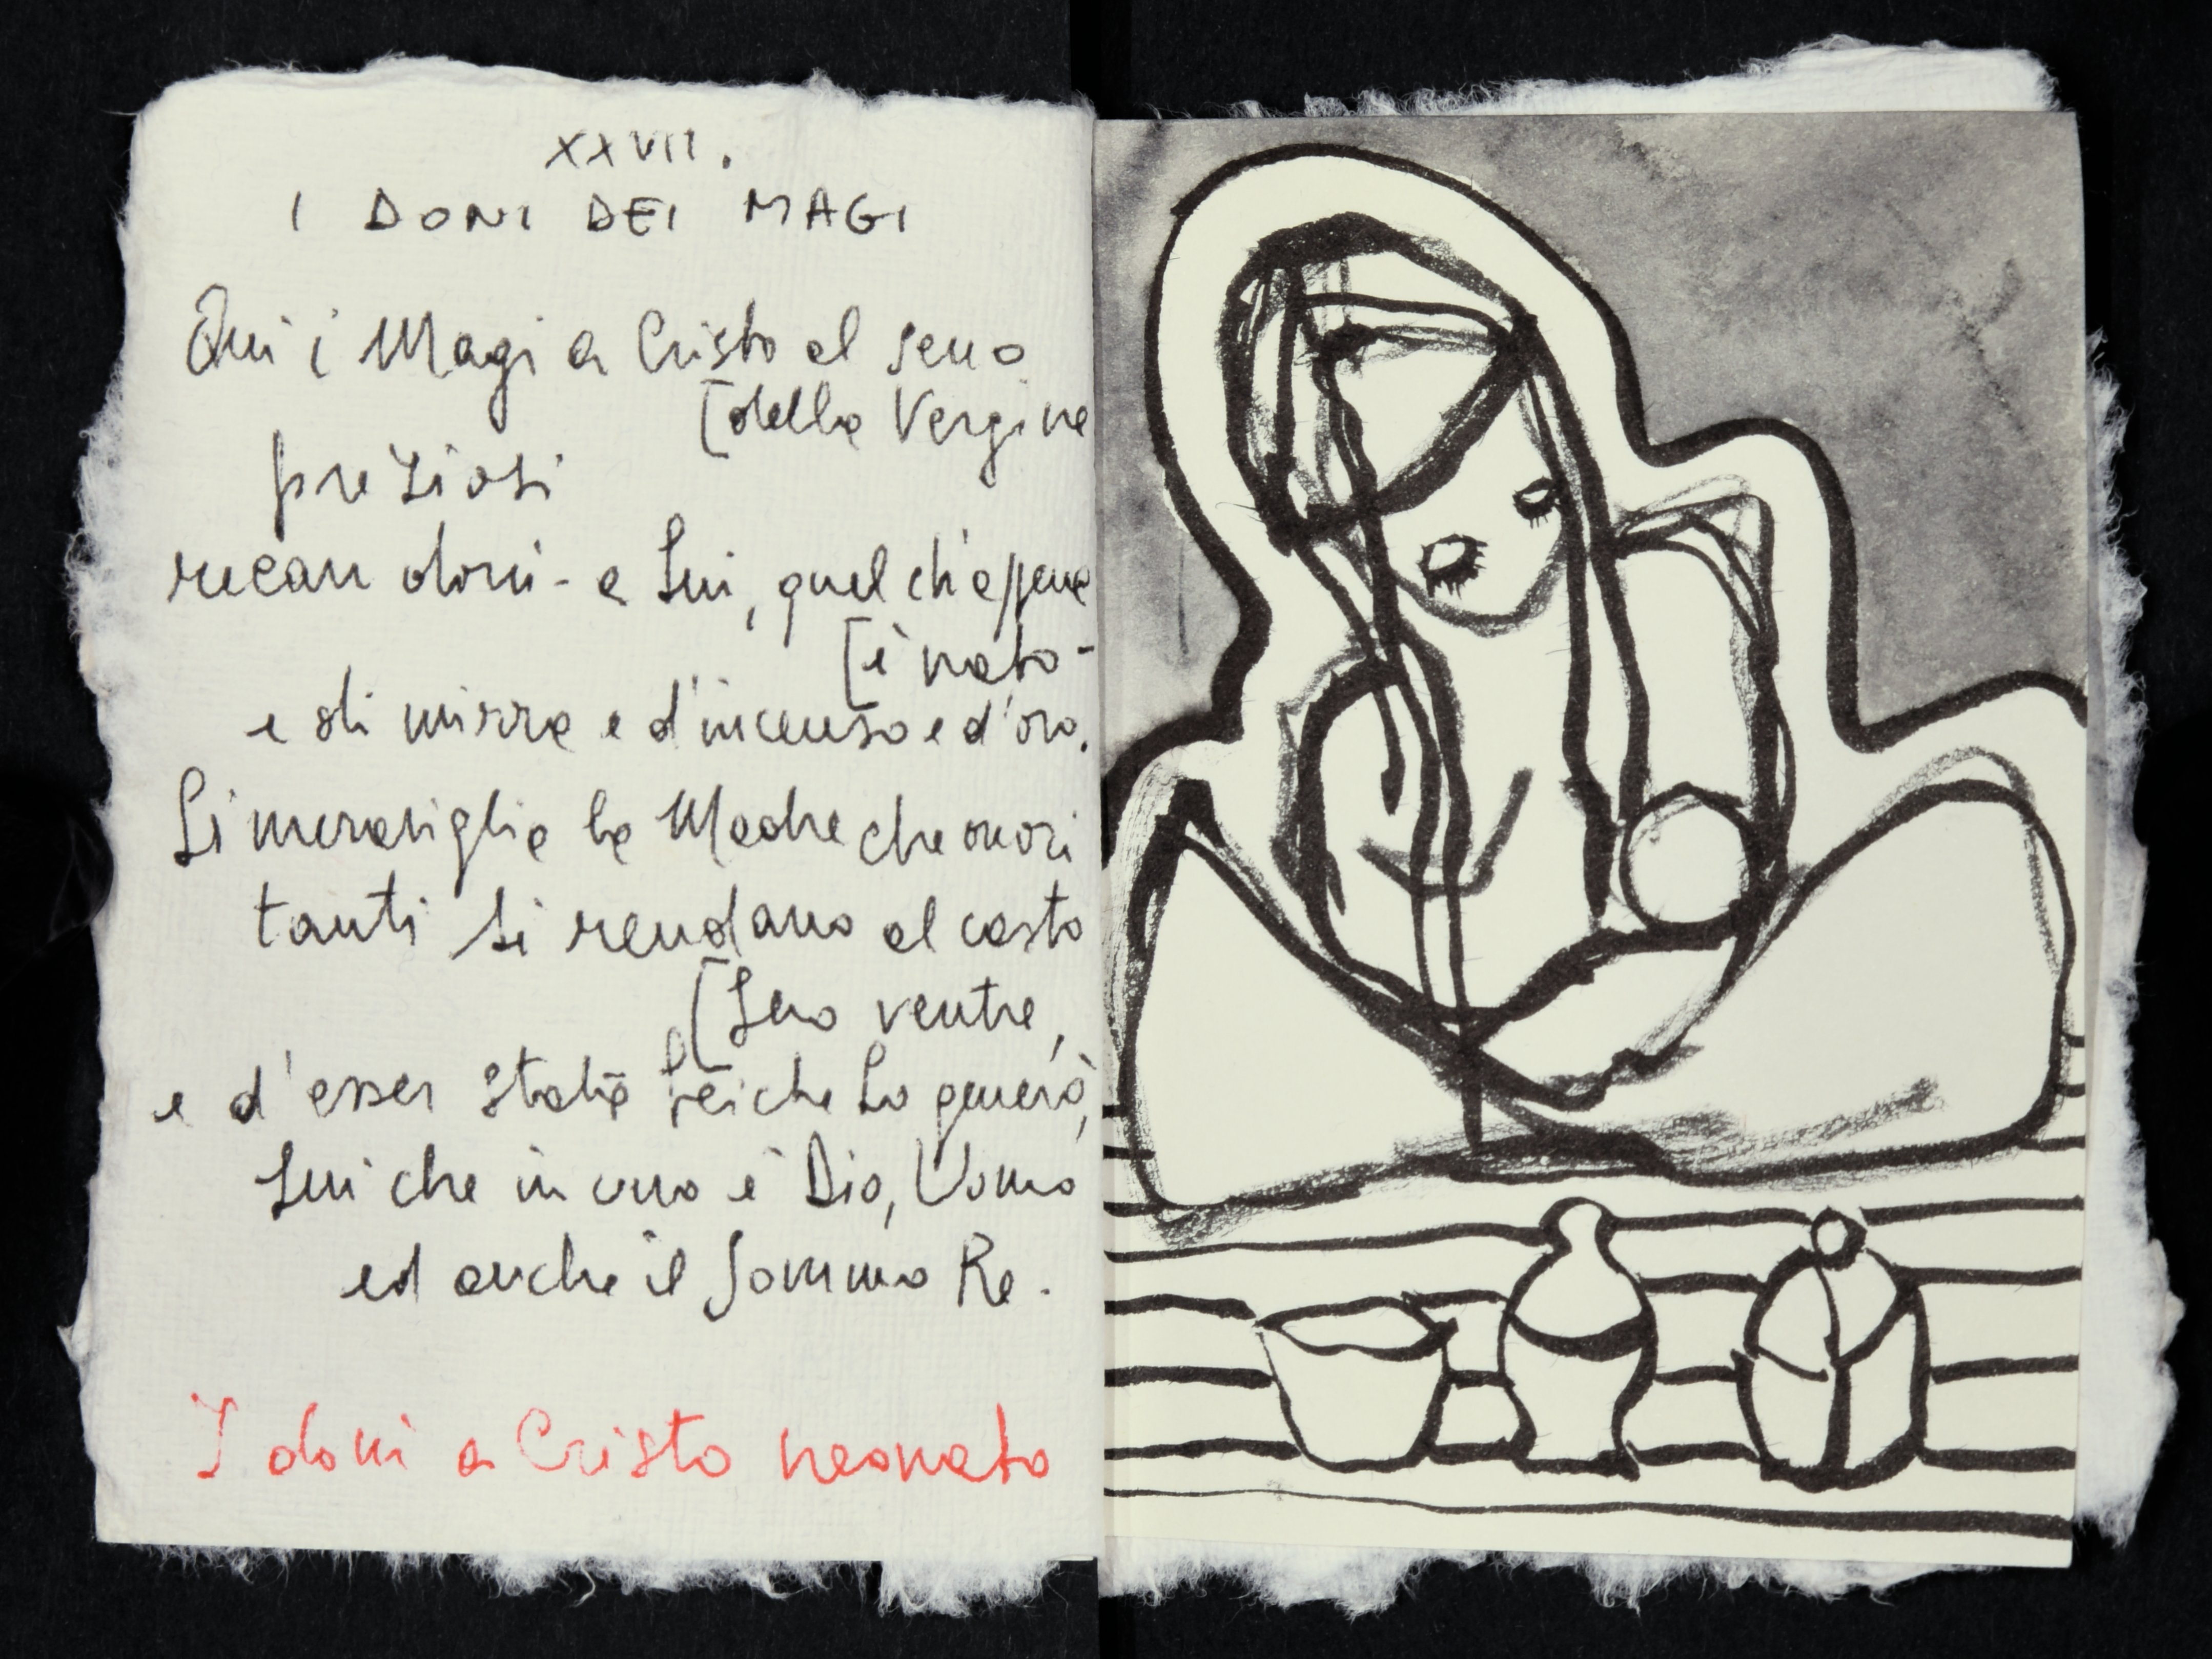 XXVII.
I DONI DEI MAGI
Qui i Magi a Cristo al seno
[della Vergine
preziosi
recan doni - a Lui, quel ch'appena
[è nato -
e di mirra e d'incenso e d'oro.
Si meraviglia la Madre che onori
tanti si rendano al casto
[Suo ventre,
e d'esser stata Lei che Lo generò,
Lui che in uno è Dio, Uomo
ed anche il Sommo Re.
I doni a Cristo neonato